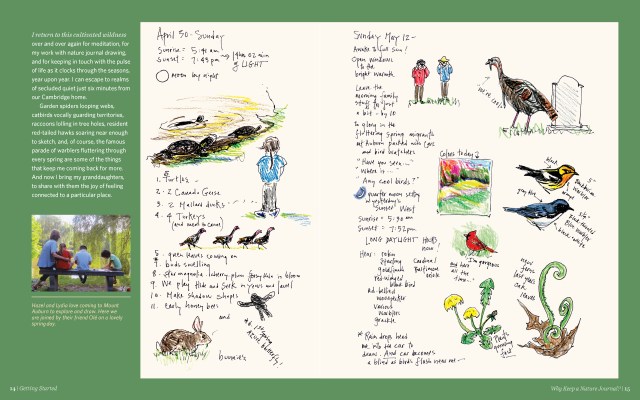 I return to this cultivated wildness
over and over again for meditation, for
my work with nature journal drawing,
and for keeping in touch with the pulse
of life as it clocks through the seasons,
year upon year. I can escape to realms
of secluded quiet just six minutes from
our Cambridge home.
Garden spiders looping webs,
catbirds vocally guarding territories,
raccoons lolling in tree holes, resident
red-tailed hawks soaring near enough
to sketch, and, of course, the famous
parade of warblers fluttering through
every spring are some of the things
that keep me coming back for more.
And now I bring my granddaughters,
to share with them the joy of feeling
connected to a particular place.
Hazel and Lydia love coming to Mount
Auburn to explore and draw. Here we
are joined by their friend Old on a lovely
spring day.
14 | Getting Started
April 30 - Sunday
Sunrise = 5:41 am
Sunset = 7:43 pm
14 hr 02 min
of LIGHT
moon by night
1. Turtles
2 - 2 Canada Geese
3. 2 Mallard ducks
4 - 4 Turkeys
5 - green leaves coming on
6 - buds swelling
8 - star magnolia - cherry plum forsythia in bloom
9 - We play Hide and Seek
10 - Make shadow shapes
11 - Early honey bees
and
bunnies
Sunday May 12 -
Awake to full sun!
Open windows
to the
bright warmth
Leave the
morning family
stuff to "just
a bit - by 10
to glory in the
fluttering spring migrants
Mt Auburn packed with cars
and bird watchers
"Have you seen...."
"Where is ....
"Any cool birds?"
quarter moon setting
yesterday's
sunset West
Sunrise = 5:30 am
Sunset = 7:57 pm
LONG DAYLIGHT HOURS,
now!
Hear: robin
starling
goldfinch
red-winged
blackbird
red-bellied
woodpecker
various
warblers
grackle
Cardinal
Baltimore
oriole
Rain drops send
me into the car to
draw. And car becomes
a blind as birds flash near me -
Colors today
Blackburnian
warbler
5"
"I'm gorgeous
and here
all the
time..."
new
ferns
last year's
oak
leaves
Plants
growing
fast
Why Keep a Nature Journal? | 15